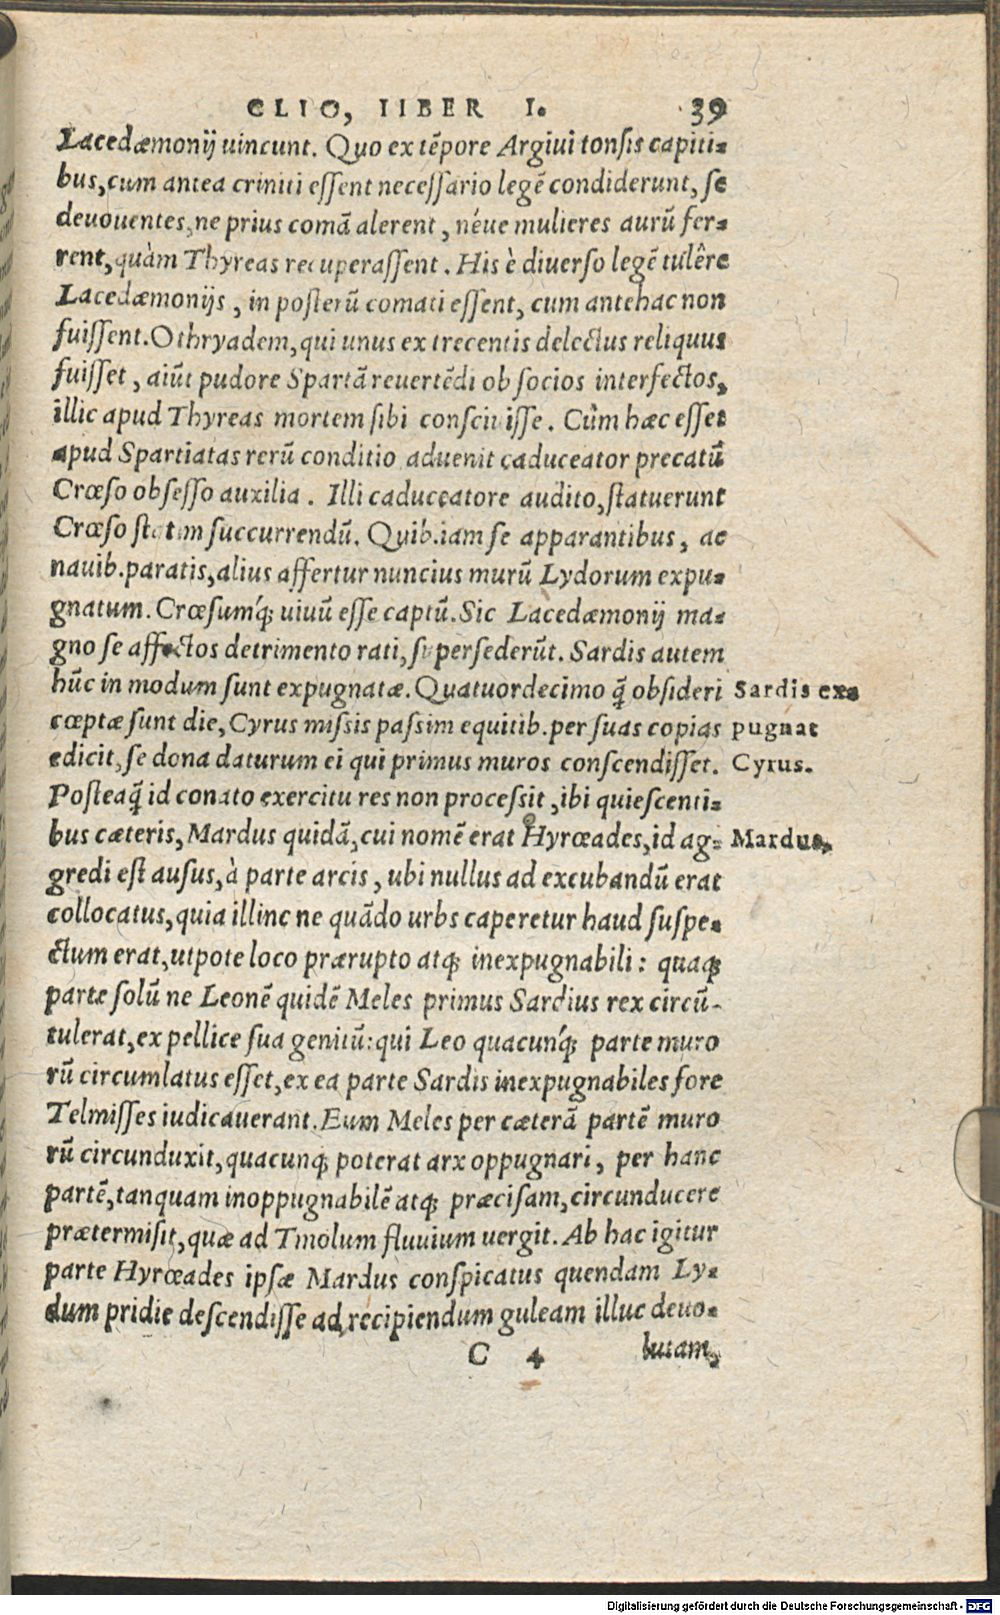 CLIO, IIBER I. 39
Lacedæmonij uincunt. Quo ex tẽpore Argiui tonsis capiti-
bus, cum antea criniti essent necessario legẽ condiderunt, se
deuouentes, ne prius comã alerent, néue mulieres aurũ fer-
rent, quàm Thyreas recuperassent. His è diuerso legẽ tulêre
Lacedæmonijs, in posterũ comati essent, cum antehac non
fuissent. Othryadem, qui unus ex trecentis delectus reliquus
fuisset, aiũt pudore Spartã reuertẽdi ob socios interfectos,
illic apud Thyreas mortem sibi consciuisse. Cùm hæc esset
apud Spartiatas rerũ conditio aduenit caduceator precatũ
Crœso obsesso auxilia. Illi caduceatore audito, statuerunt
Crœso statim succurrendũ. Quib. iam se apparantibus, ac
nauib. paratis, alius affertur nuncius murũ Lydorum expu-
gnatum. Crœsumq́; uiuũ esse captũ. Sic Lacedæmonij ma-
gno se affectos detrimento rati, supersederũt. Sardis autem
hũc in modum sunt expugnatæ. Quatuordecimo q̃ obsideri
cœptæ sunt die, Cyrus missis passim equitib. per suas copias
edicit, se dona daturum ei qui primus muros conscendisset.
Sardis ex-
pugnat
Cyrus.
Posteaq̃ id conato exercitu res non processit, ibi quiescenti-
bus cæteris, Mardus quidã, cui nomẽ erat Hyrœades, id ag-
Mardus,
gredi est ausus, à parte arcis, ubi nullus ad excubandũ erat
collocatus, quia illinc ne quãdo urbs caperetur haud suspe-
ctum erat, utpote loco prærupto atq; inexpugnabili: quaq;
parte solũ ne Leonẽ quidẽ Meles primus Sardius rex circũ-
tulerat, ex pellice sua genitũ: qui Leo quacunq́; parte muro
rũ circumlatus esset, ex ea parte Sardis inexpugnabiles fore
Telmisses iudicauerant. Eum Meles per cæterã partẽ muro
rũ circunduxit, quacunq; poterat arx oppugnari, per hanc
partẽ, tanquam inoppugnabilẽ atq; præcisam, circunducere
prætermisit, quæ ad Tmolum fluuium uergit. Ab hac igitur
parte Hyrœades ipsæ Mardus conspicatus quendam Ly-
dum pridie descendisse ad recipiendum guleam illuc deuo-
C 4 lutam,
Digitalisierung gefördert durch die Deutsche Forschungsgemeinschaft - DFG